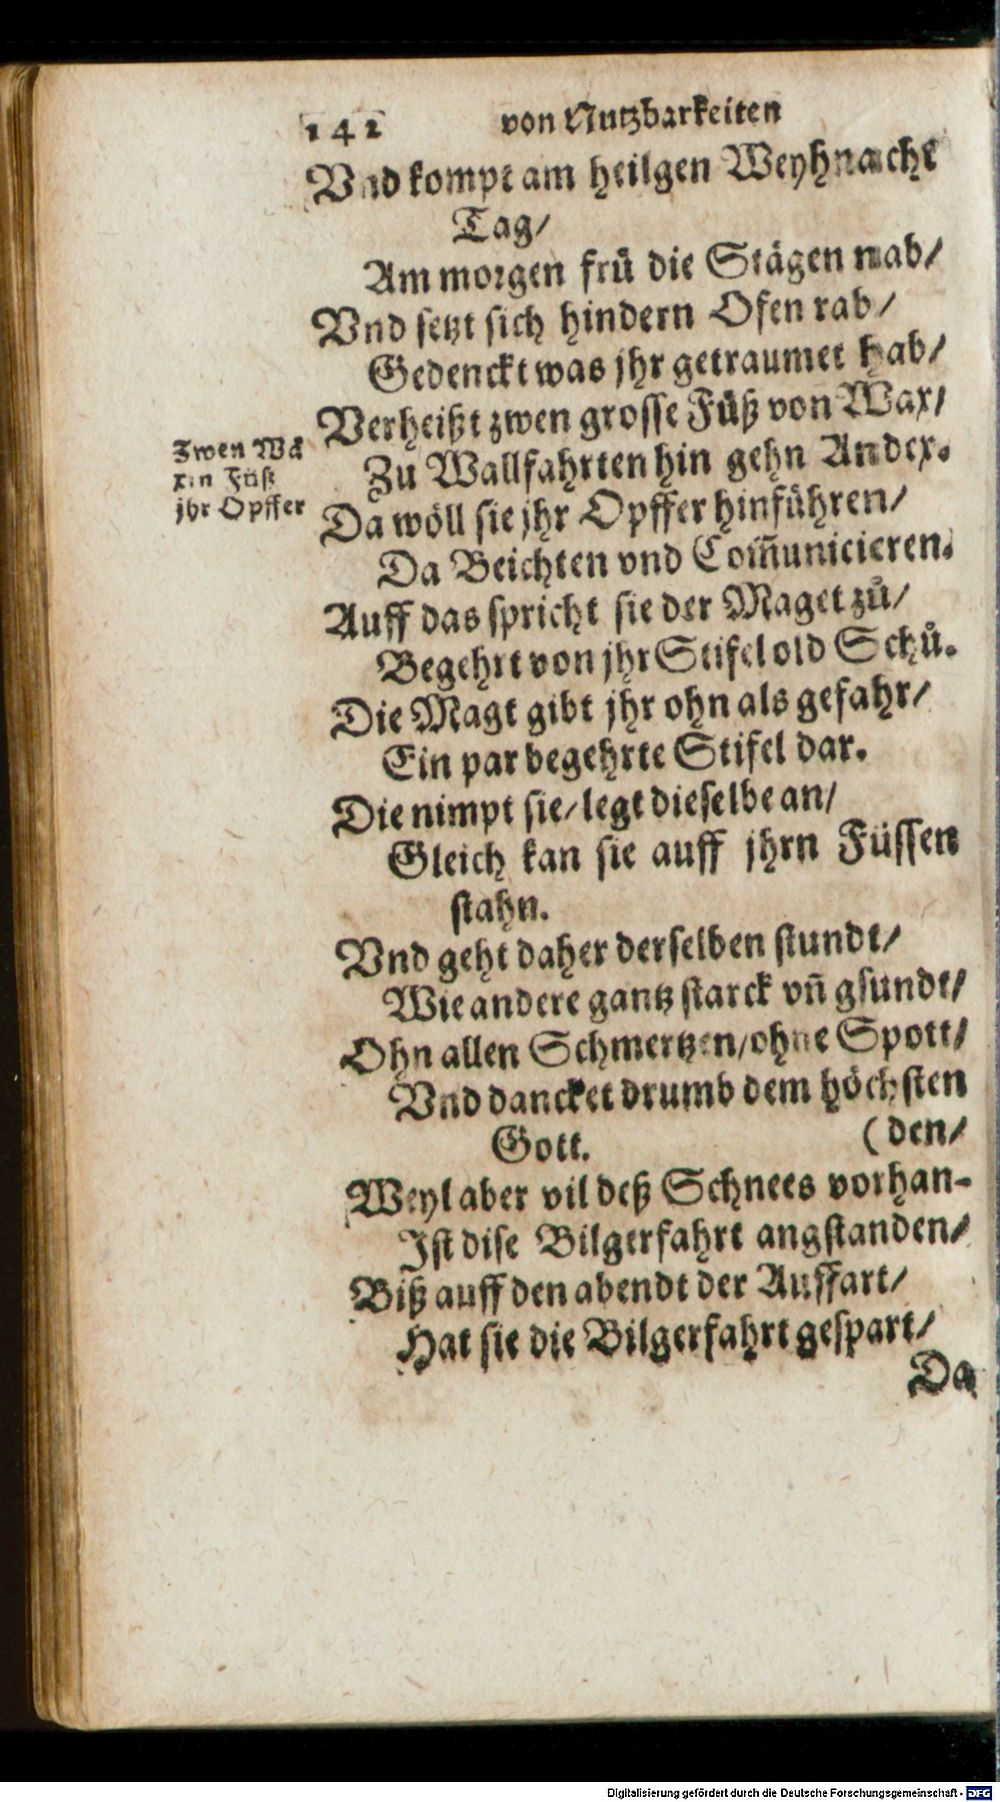 142 von Nutzbarkeiten
Vnd kompt am heilgen Weyhnacht
Tag/
Am morgen frü die Stägen nab/
Vnd setzt sich hindern Ofen rab/
Gedenckt was jhr getraumet hab/
Verheißt zwen grosse Füß von Wax/
Zu Wallfahrten hin gehn Andex.
Zwen Wä
xin Füß
jhr Opffer
Da wöll sie jhr Opffer hinführen/
Da Beichten vnd Com̃unicieren.
Auff das spricht sie der Maget zů/
Begehrt von jhr Stifel old Schů.
Die Magt gibt jhr ohn als gefahr/
Ein par begehrte Stifel dar.
Die nimpt sie/ legt dieselbe an/
Gleich kan sie auff jhrn Füssen
stahn.
Vnd geht daher derselben stundt/
Wie andere gantz starck vn̄ gsundt/
Ohn allen Schmertzen/ ohne Spott/
Vnd dancket drumb dem höchsten
Gott. (den/
Weyl aber vil deß Schnees vorhan-
Ist dise Bilgerfahrt angstanden/
Biß auff den abendt der Auffart/
Hat sie die Bilgerfahrt gespart/
Da
Digitalisierung gefördert durch die Deutsche Forschungsgemeinschaft - DFG